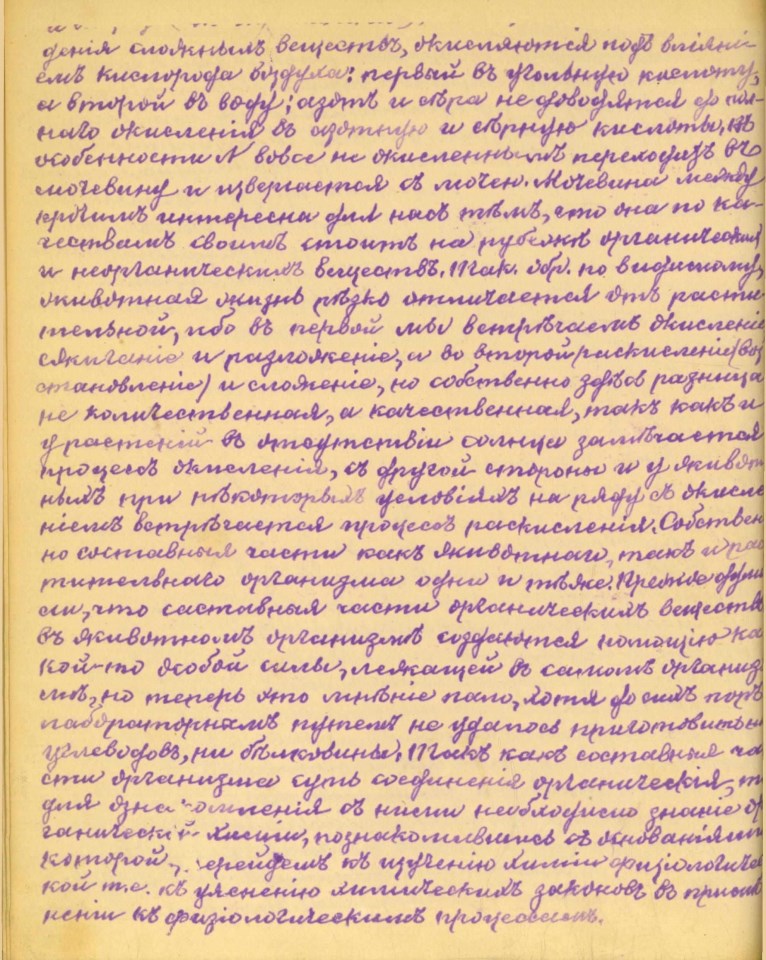 денія сложныхъ веществъ, окисляются подъ вліяні-
емъ кислорода воздуха: первый въ угольную кислоту,
а второй въ воду; азотъ и сѣра не доводятся до пол-
наго окисленія въ азотную и сѣрную кислоты, въ
особенности N вовсе не окисленнымъ переходитъ въ
мочевину и извергается съ мочей. Мочевина между
прочимъ интересна для насъ тѣмъ, что она по ка-
чествамъ своимъ стоитъ на рубежѣ органическихъ
и неорганическихъ веществъ. Так. обр. по видимому,
животная жизнь рѣзко отличается отъ расти
тельной, ибо въ первой мы встрѣчаемъ окисленіе
сжиганіе и разложеніе, а во второй раскисленіе (воз
становленіе) и сложеніе, но собственно здѣсь разница
не количественная, а качественная, такъ какъ и
у растеній въ отсутствіи солнца замѣчается
процессъ окисленія, съ другой стороны и у живот
ныхъ при нѣкоторыхъ условіяхъ на ряду съ окисле
ніемъ встрѣчается процессъ раскисленія. Собствен
но составныя части какъ животнаго, такъ и рас
тительнаго организма одни и тѣже. Прежде дума
ли, что составныя части органическихъ веществъ
въ животномъ организмѣ создаются помощію ка
кой-то особой силы, лежащей въ самомъ организ
мѣ, но теперь это мнѣніе пало, хотя до сихъ поръ
лабораторнымъ путемъ не удалось приготовить ни
углеводовъ, ни бѣлковины. Такъ какъ составныя ча
сти организма суть соединенія органическія, то
для ознакомленія съ ними необходимо знаніе ор
ганической химіи, познакомившись съ основаніями
которой, перейдемъ къ изученію химіи физіологичес
кой т.е. къ уясненію химическихъ законовъ въ примѣ
неніи къ физіологическимъ процессамъ.